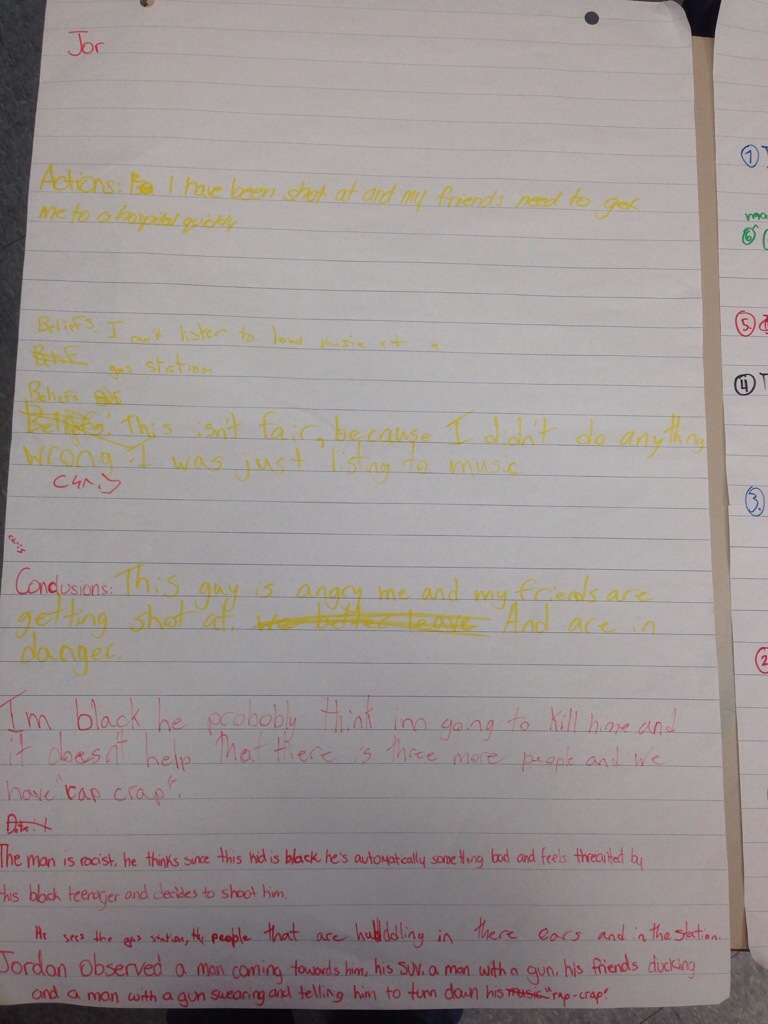 Jor
Actions: I have been shot at and my friends need to get
me to a hospital quickly
Beliefs: I can't listen to loud music at a
gas station
Beliefs
Beliefs: This isn't fair, because I didn't do anything
wrong I was just listing to music
Chris
Conclusions: This guy is angry me and my friends are
getting shot at. we better leave And are in
danger.
Im black he probobly think im going to kill hime and
it doesn't help that there is three more people and we
have "rap crap".
The man is racist. he thinks since this kid is black he's automatically something bad and feels threatted by
this black teenager and decides to shoot him.
He sees the gas station, the people that are huddling in there cars and in the station.
Jordan Observed a man coming towards him, his SUV. a man with a gun, his friends ducking
and a man with a gun swearing and telling him to turn down his music "rap-crap".
1
ma
6
5.
4 T
3.
2